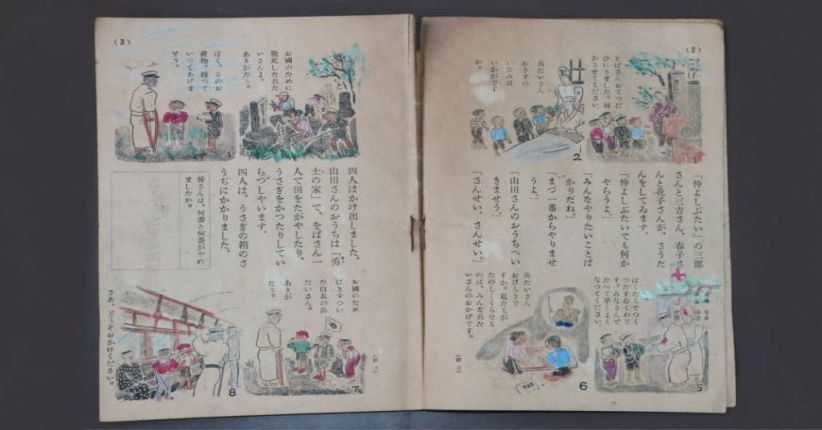 (2)
をばさんおてつだ
ひにきました。何
かさせてください。
兵たいさん
おきずの
いたみは
いかがです
か。
2
「仲よしぶたい」の三郎
さんと三吉さん、春子さ
んと花子さんが、さうだ
んをしてゐます。
「仲よしぶたいでも何か
やらうよ。」
「みんなやりたいことば
かりだね。」
「まづ一番からやりませ
うよ。」
「山田さんのおうちへい
きませう。」
「さんせい、さんせい。」
5
兵たいさん
おげんきで
すか。私たちが
たのしくくらせる
のは、みんな兵た
いさんのおかげです。
6
(3)
お國のために
戰死した兵た
いさんよ。
ありがたう。
ぼく、そのお
荷物、持つて
いつてあげま
せう。
四人はかけ出しました。
山田さんのおうちは「勇
士の家」で、をばさん一
人で田をたがやしたり、
うさぎをかつたりしてい
らつしやいます。
四人は、うさぎの箱のさ
うぢにかかりました。
皆さんは、何番と何番がやれ
ましたか。
お國のため
にきずつい
た白衣の兵
たいさん。
ありが
たう。
7
8
さあ、どうぞおかけください。